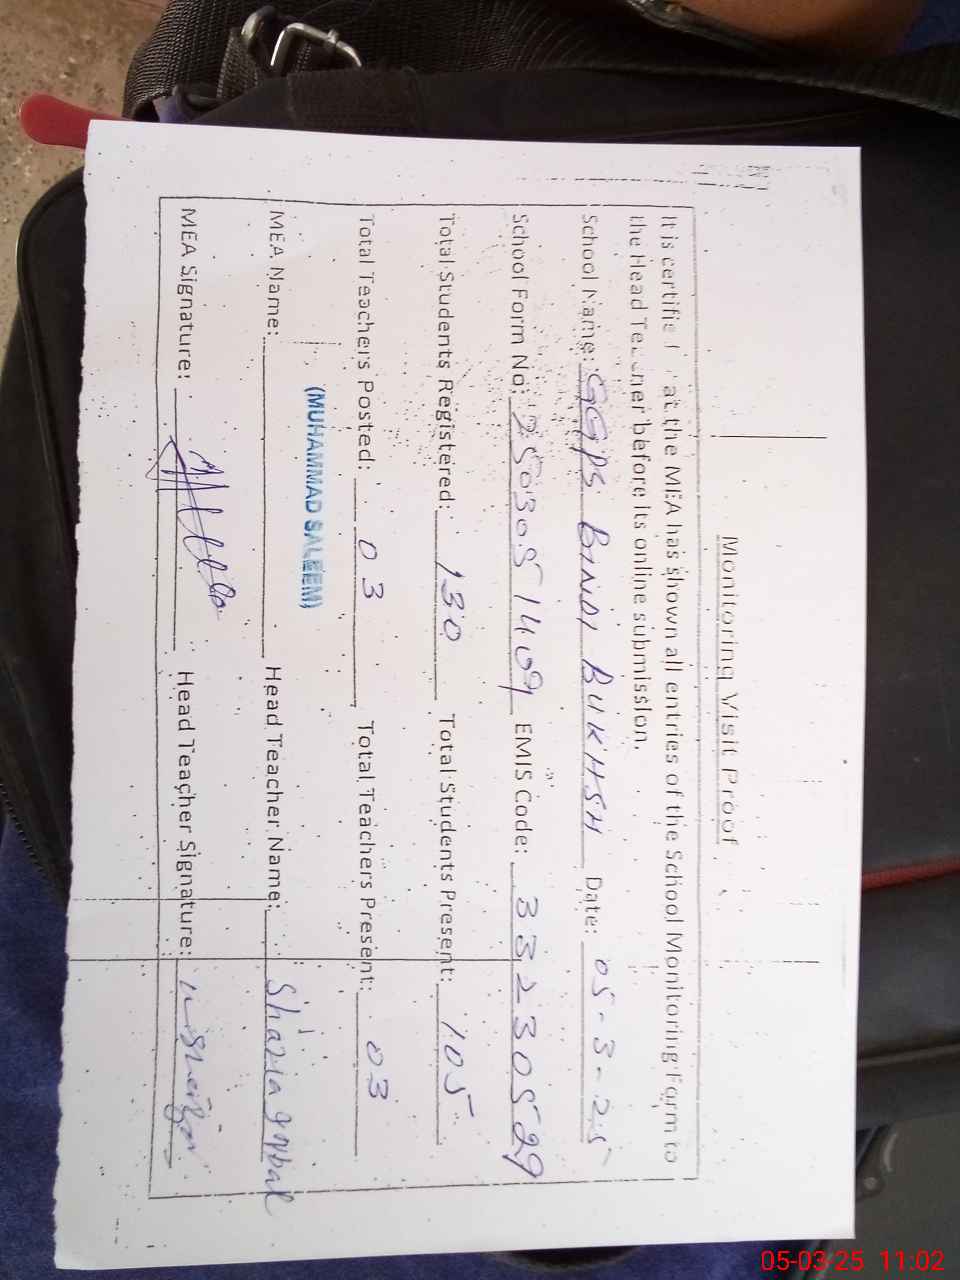 Monitoring Visit Proof
It is certified at the MEA has shown all entries of the School Monitoring Form to
the Head Teacher before its online submission.
School Name: GGPS BINDI BUKHSH Date: 05-3-25
School Form No: 2503051409 EMIS Code: 33230529
Total Students Registered: 130 Total Students Present: 105
Total Teachers Posted: 03 Total Teachers Present: 03
(MUHAMMAD SALEEM)
MEA Name: Head Teacher Name: Shazia Iqbal
MEA Signature: Head Teacher Signature:
05-03-25 11:02